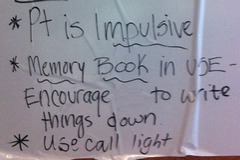 * Pt is Impulsive
* Memory Book in USE -
Encourage to write
things down.
* Use call light